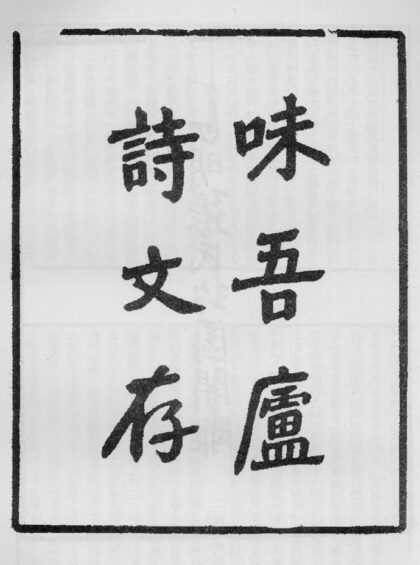 味吾廬
詩文存